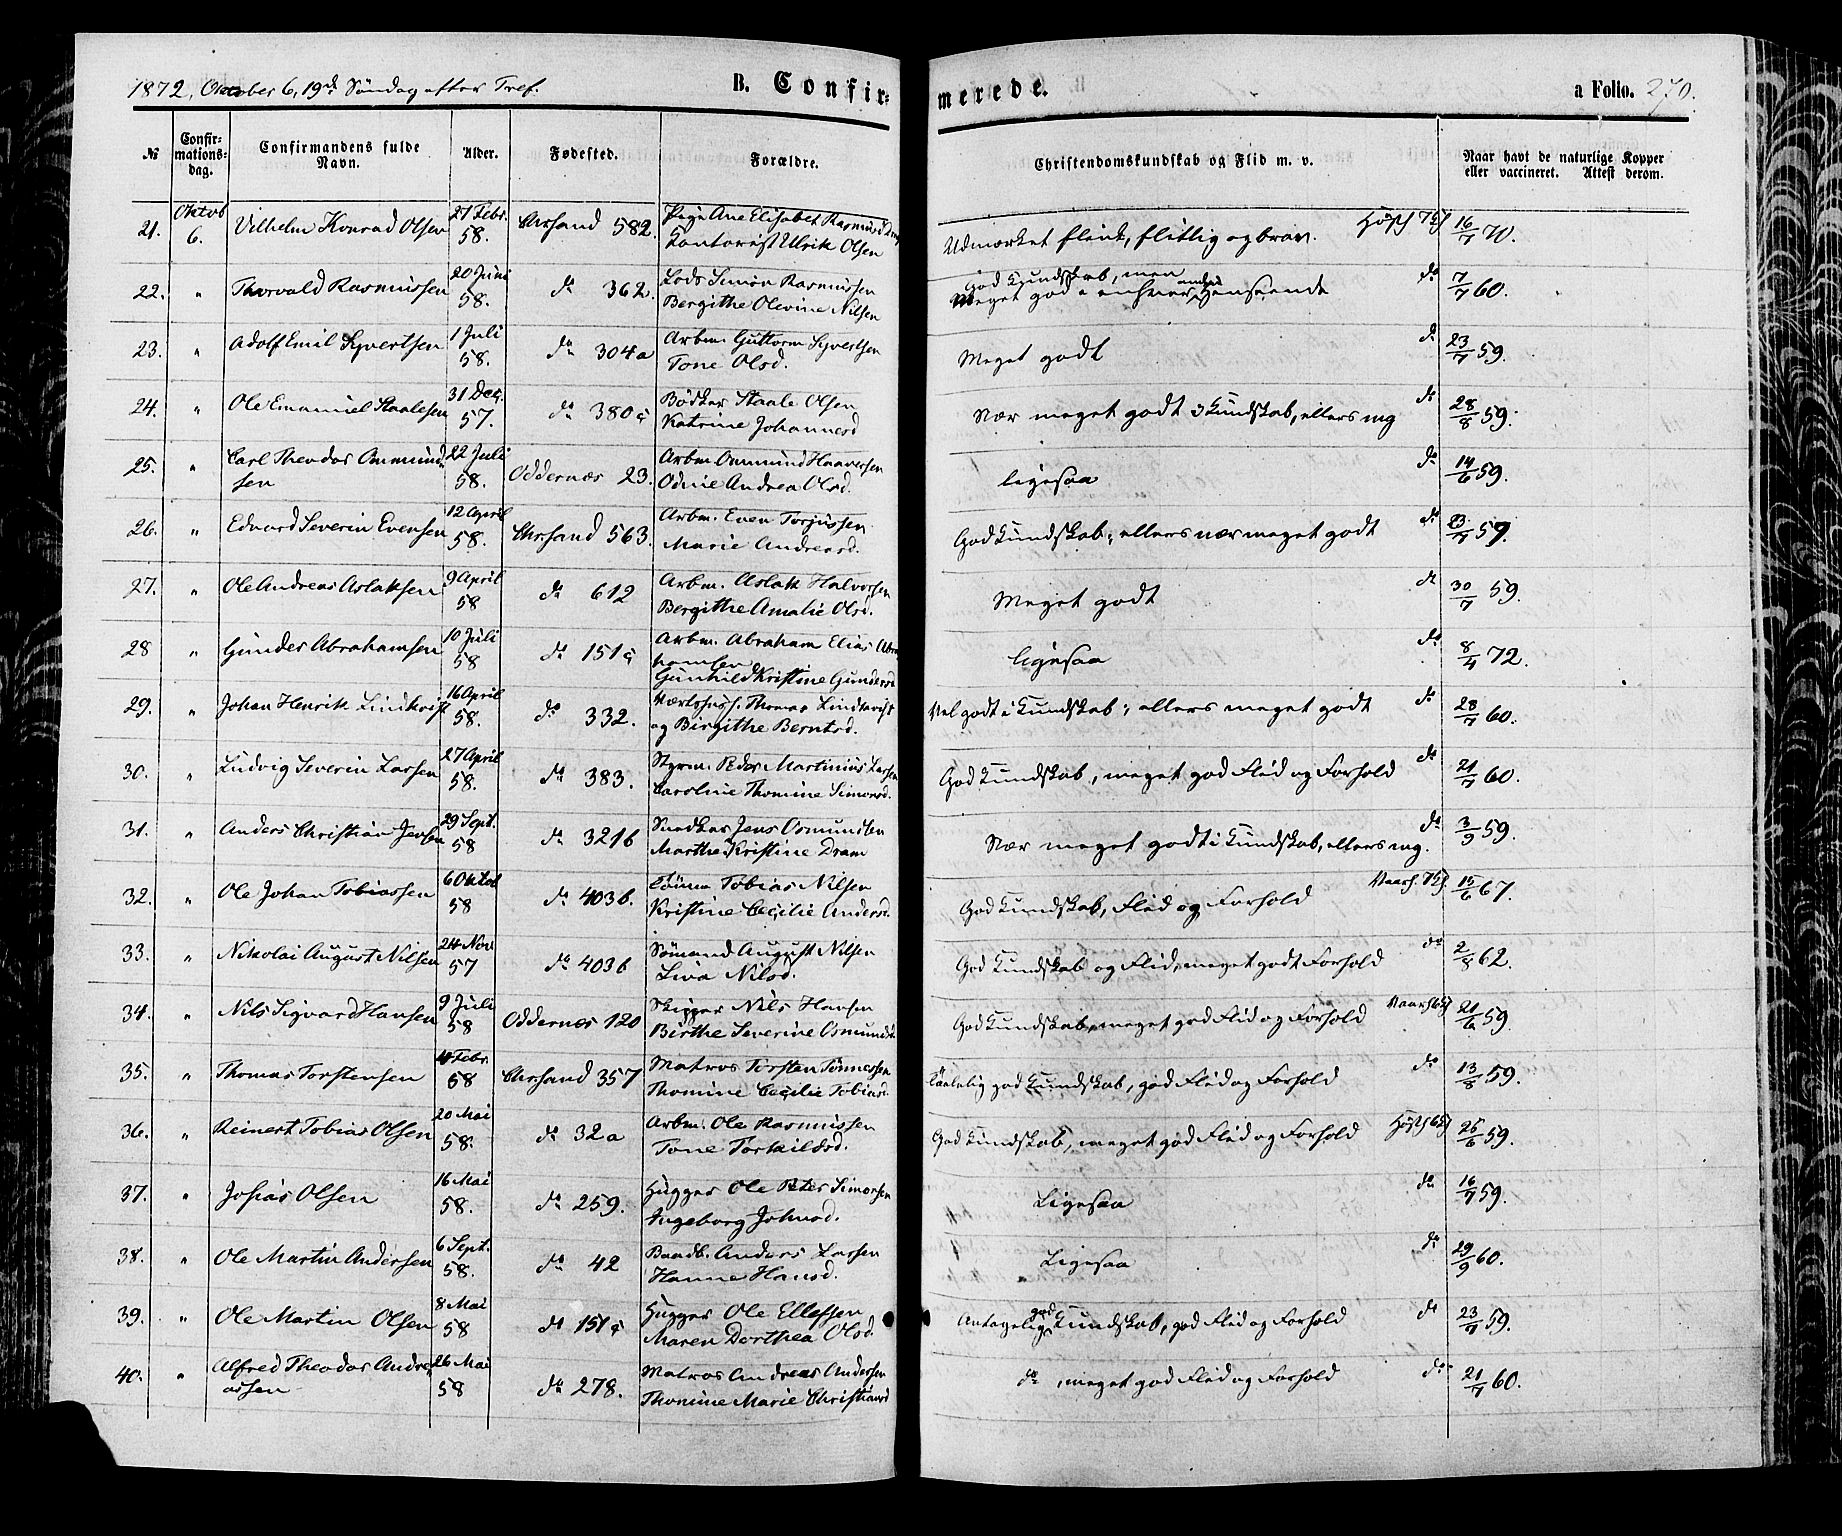 1872, Oktober 6, 19de Søndag efter Tref.
B. Confir-
merede.
a Folio. 270.
№
Confir-
mations-
dag.
Confirmandens fulde
Navn.
Alder.
Fødested.
Forældre.
Christendomskundskab og Flid m. v.
Naar havt de naturlige Kopper
eller vaccineret. Attest derom.
21. Oktob 6. Vilhelm Konrad Olsen 27 Febr. 58. Chrsand 582. Pige Ane Elisabet
Kontorist Ulrik Olsen
Udmærket flink, flittig og brav. Høst 7 16/7 70.
22. " Thorvald Rasmussen 20 Juni 58. do 362. Lods Simon Rasmussen
Bergithe Olevine Nilsen
god Kundskab, men
Meget god i enhver anden Henseende do 7/7 60.
23. " Adolf Emil Syvertsen 1 Juli 58. do 304a Arbm. Guttorm Syvertsen
Tone Olsd.
Meget godt do 23/7 59.
24. " Ole Emanuel Staalesen 31 Dec. 57. do 380c Bødker Staale Olsen
Katrine Johannesd
Nær meget godt i Kundskab, ellers mg do 28/8 59.
25. " Carl Theodor Ommund-
sen 22 Juli 58. Oddernæs 23. Arbm. Ommund Haaversen
Odine Andrea Olsd.
ligesaa do 14/6 59.
26. " Edvard Severin Evensen 12 April 58. Chrsand 563. Arbm. Even Torjussen
Marie Andreasd.
God Kundskab, ellers nær meget godt do 23/7 59.
27. " Ole Andreas Aslaksen 9 April 58 do 612 Arbm. Aslak Halvorsen
Bergithe Amalie Olsd.
Meget godt do 30/7 59.
28 " Gunder Abrahamsen 10 Juli 58 do 151c Arbm. Abraham Elias Abra
hamsen
Gunhild Kristine Gundersd
ligesaa do 8/4 72.
29. " Johan Henrik Lindkvist 16 April 58. do 332. Værtshusf. Thomas Lindkvist
og Birgithe Berntsd.
Vel godt i Kundskab, ellers meget godt do 28/7 60.
30. " Ludvig Severin Larsen 27 April 58. do 383. Styrm. Peder Martinius Larsen
Caroline Thomine Simonsd.
God Kundskab, meget god Flid og Forhold do 21/7 60.
31. " Anders Christian Jensen 29 Sept. 58 do 321b Snedker Jens Osmundsen
Marthe Kristine Dram
Nær meget godt i Kundskab, ellers mg. do 3/9 59.
32. " Ole Johan Tobiassen 6 Oktob 58 do 403b. Tømm Tobias Nilsen
Kristine Cecilie Andersd.
God Kundskab, Flid og Forhold 15/6 67.
33. " Nikolai August Nilsen 24 Nov 57 do 403b Sømand August Nilsen
Liva Nilsd.
God Kundskab og Flid, meget godt Forhold do 2/8 62.
34. " Nils Sigvard Hansen 9 Juli 58 Oddernæs 120 Skipper Nils Hansen
Birthe Severine Osmundsd.
God Kundskab, meget god Flid og Forhold 21/6 59.
35. " Thomas Torstensen 4 Febr. 58 Chrsand 357 Matros Torsten Tønnessen
Thomine Cecilie Tobiasd.
Taalelig god Kundskab, god Flid og Forhold do 13/8 59.
36. " Reinert Tobias Olsen 20 Mai 58. do 32a Arbm. Ole Rasmussen
Tone Torkildsd.
God Kundskab, meget god Flid og Forhold 25/6 59.
37. " Josias Olsen 16 Mai 58. do 259. Hugger Ole Peter Simonsen
Ingeborg Johnsd.
Ligesaa do 16/7 59.
38. " Ole Martin Andersen 6 Sept. 58. do 42 Baadb. Anders Larsen
Hanne Hansd.
Ligesaa do 29/9 60.
39. " Ole Martin Olsen 8 Mai 58 do 151c Hugger Ole Ellefsen
Maren Dorthea Olsd.
Antagelig god Kundskab, god Flid og Forhold do 23/7 59.
40. " Alfred Theodor Andre-
assen 26 Mai 58 do 278. Matros Andreas Andersen
Thomine Marie Christiansd
do, meget god Flid og Forhold do 21/7 60.